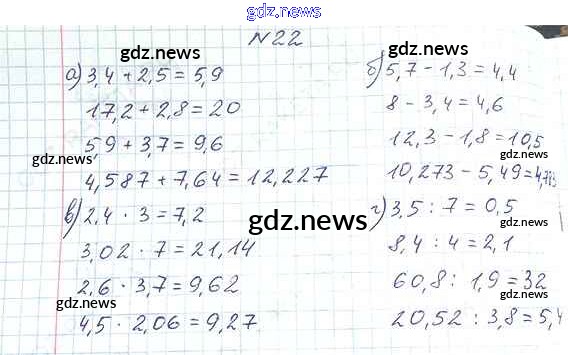 gdz.news
N22
gdz.news
gdz.news
а) 3,4 + 2,5 = 5,9
17,2 + 2,8 = 20
gdz.news
5,9 + 3,7 = 9,6
gdz.news
4,587 + 7,64 = 12,227
б) 5,7 - 1,3 = 4,4
8 - 3,4 = 4,6
12,3 - 1,8 = 10,5
gdz.news
10,273 - 5,49 = 4,783
в) 2,4 · 3 = 7,2
gdz.news
3,02 · 7 = 21,14
2,6 · 3,7 = 9,62
gdz.news
4,5 · 2,06 = 9,27
г) 3,5 : 7 = 0,5
8,4 : 4 = 2,1
60,8 : 1,9 = 32
gdz.news
20,52 : 3,8 = 5,4